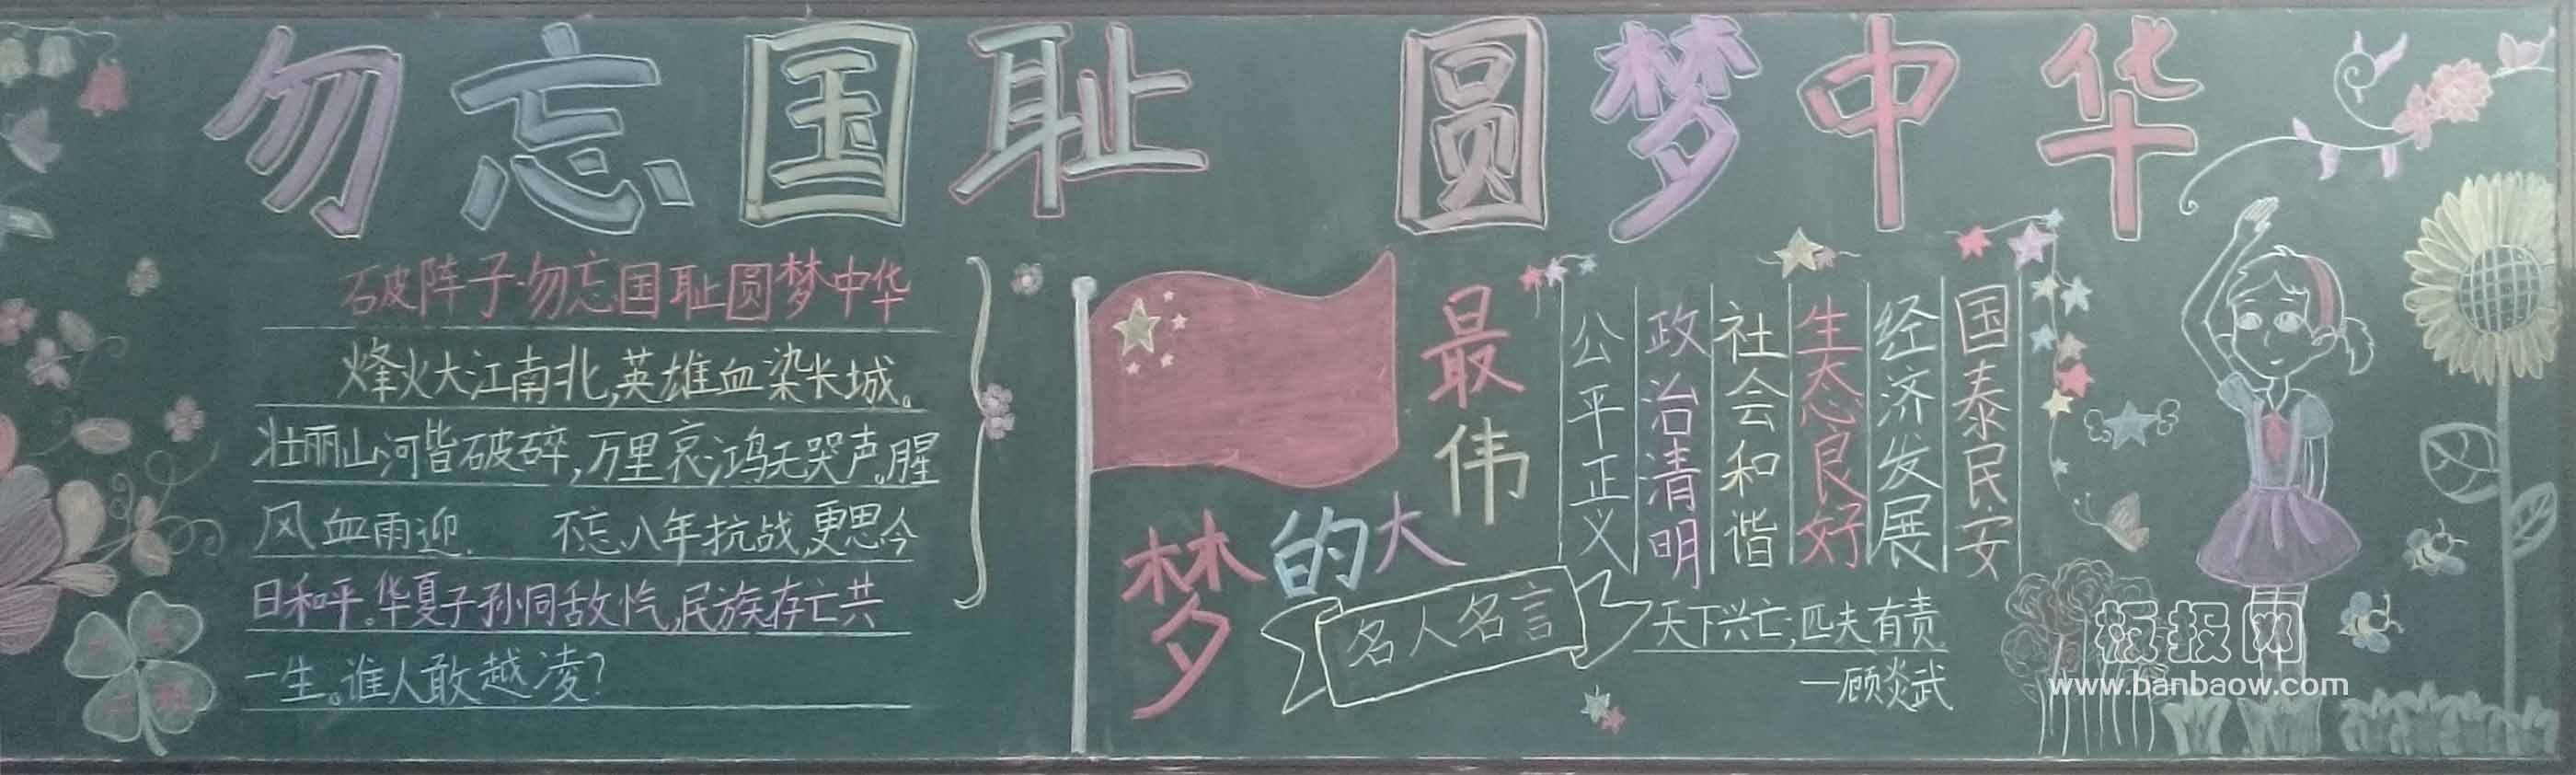 勿忘国耻 圆梦中华
破阵子·勿忘国耻圆梦中华
烽火大江南北,英雄血染长城。
壮丽山河皆破碎,万里哀鸿无哭声。腥
风血雨迎. 不忘八年抗战,更思今
日和平。华夏子孙同敌忾,民族存亡共
一生。谁人敢越凌?
最
伟
大
的
梦
国泰民安
经济发展
生态良好
社会和谐
政治清明
公平正义
名人名言
天下兴亡,匹夫有责
—顾炎武
板报网
www.banbaow.com